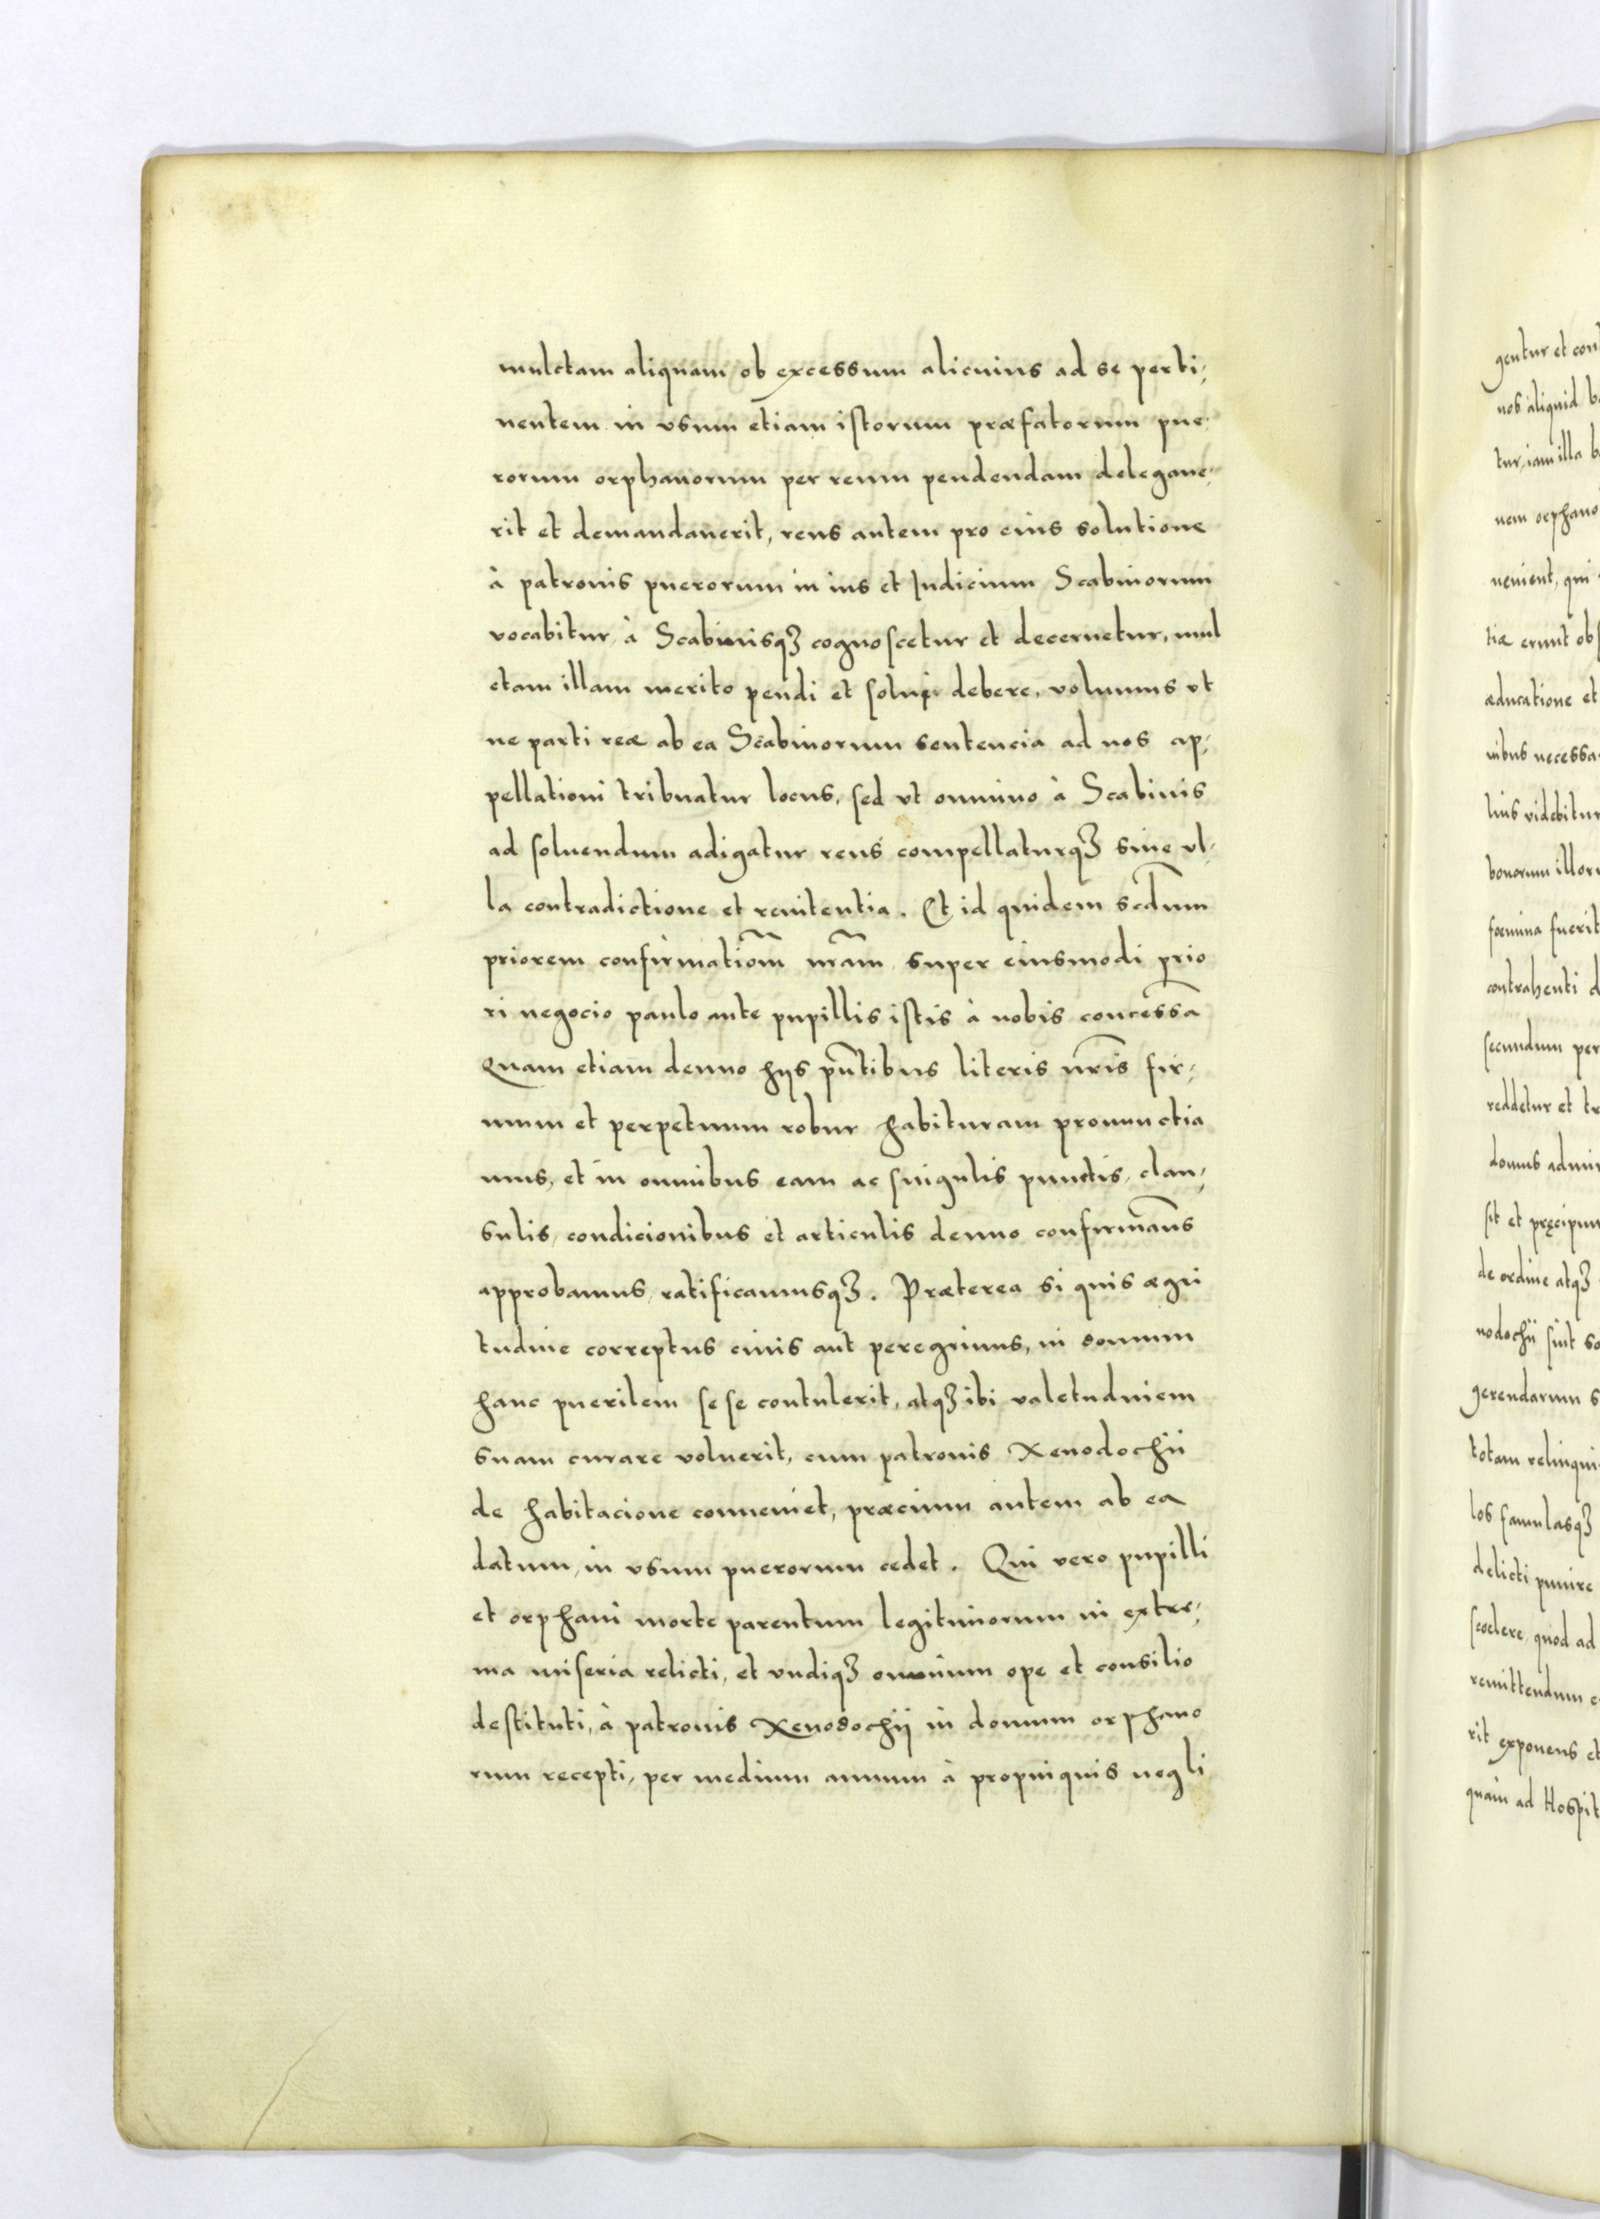 mulctam aliquam ob excessum alicuius ad se perti,
nentem in vsum etiam istorum præfatorum pue,
rorum orphanorum per reum pendendam delegaue,
rit et demandauerit, reus autem pro eius solutione
à patronis puerorum in ius et Iudicium Scabinorum
vocabitur, à Scabinisqꝫ cognoscetur et decernetur, mul
ctam illam merito pendi et solui debere, volumus vt
ne parti reæ ab ea Scabinorum sentencia ad nos ap,
pellationi tribuatur locus, sed vt omnino à Scabinis
ad soluendum adigatur reus compellaturqꝫ sine vl,
la contradictione et renitentia. Et id quidem scd̄um
priorem confirmatiom̄ nr̄am super eiusmodi prio
ri negocio paulo ante pupillis istis à nobis concessā
Quam etiam denuo hijs pn̄tibus literis nr̄is fir,
mum et perpetuum robur habituram pronunctia
mus, et in omnibus eam ac singulis punctis, clau,
sulis, condicionibus et articulis denuo confirmam̄s
approbamus, ratificamusqꝫ. Præterea si quis ægri
tudine correptus ciuis aut peregrinus, in domum
hanc puerilem se se contulerit, atqꝫ ibi valetudinem
suam curare voluerit, cum patronis Xenodochii
de habitacione conueniet, præcium autem ab ea
datum, in vsum puerorum cedet. Qui vero pupilli
et orphani morte parentum legitimorum in extre,
ma miseria relicti, et vndiqꝫ omnium ope et consilio
destituti, à patronis Xenodochij in domum orphano
rum recepti, per medium annum à propinquis negli
gentur et con
nos aliquid
tur, iam illa
nem orphano
uenient, qui
tiæ erunt obs
æducatione et
nibus necessa
lius videbitur
bonorum illor
fœmina fuerit
contrahenti d
secundum per
reddetur et tr
domus admin
sit et pręcipuu
de ordine atqꝫ
nodochii sint so
gerendarum s
totam relinqui
los famulasqꝫ
delicti punire
scœlere, quod ad
remittendum e
rit exponens et
quam ad Hospit